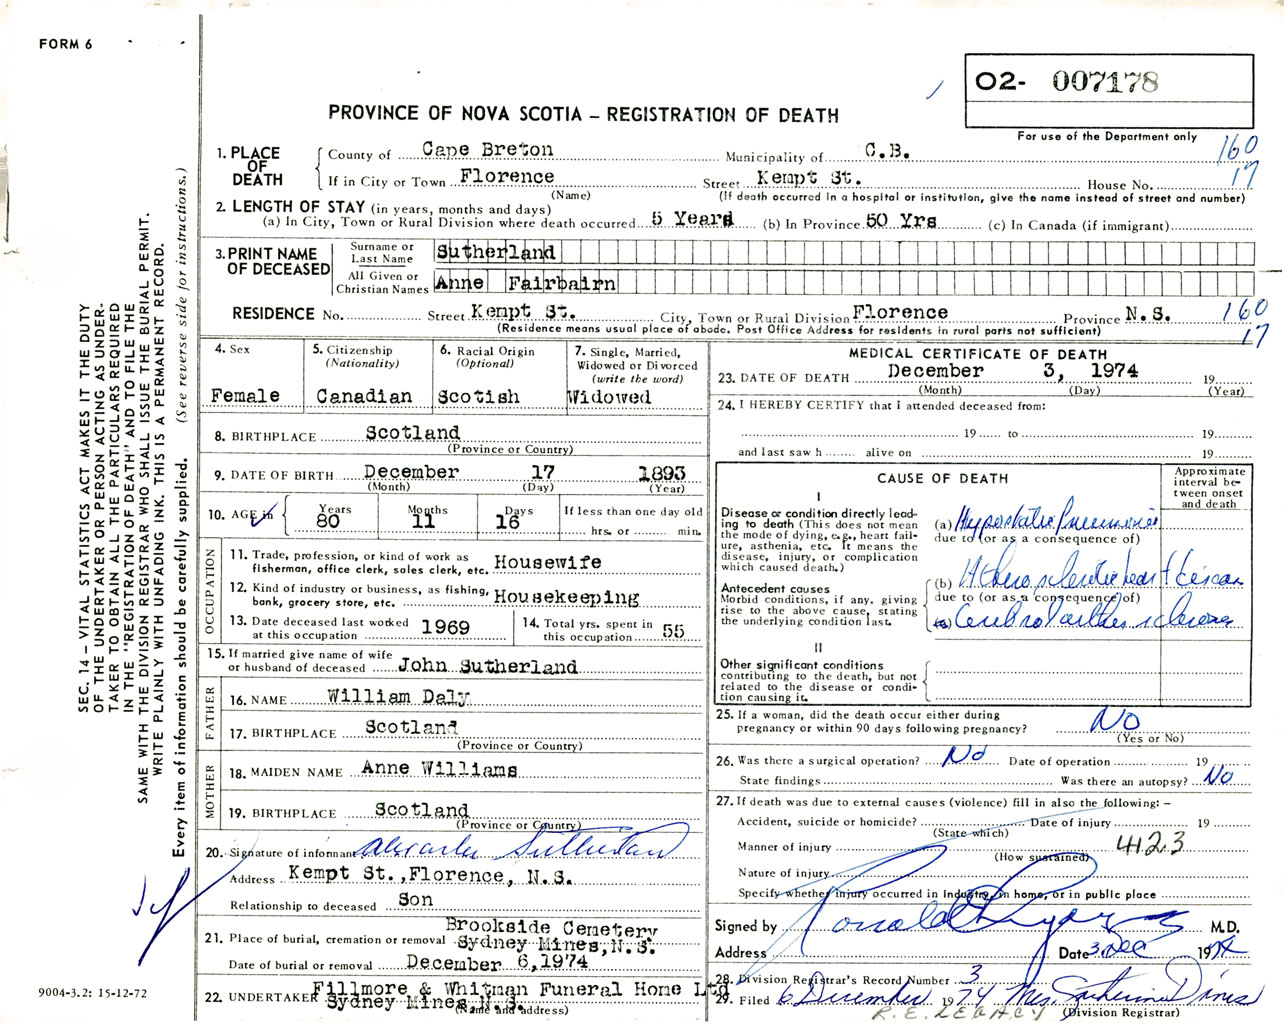 FORM 6
02- 007178
For use of the Department only
PROVINCE OF NOVA SCOTIA – REGISTRATION OF DEATH
160
17
1. PLACE OF DEATH
County of Cape Breton Municipality of C.B.
If in City or Town Florence Street Kempt St. House No.
(Name) (If death occurred in a hospital or institution, give the name instead of street and number)
2. LENGTH OF STAY (in years, months and days)
(a) In City, Town or Rural Division where death occurred 5 Years (b) In Province 50 Yrs (c) In Canada (if immigrant)
3. PRINT NAME OF DECEASED
Surname or Last Name Sutherland
All Given or Christian Names Anne Fairbairn
RESIDENCE No. Street Kempt St. City, Town or Rural Division Florence Province N.S.
(Residence means usual place of abode. Post Office Address for residents in rural parts not sufficient)
160
17
4. Sex
Female
5. Citizenship
(Nationality)
Canadian
6. Racial Origin
(Optional)
Scotish
7. Single, Married,
Widowed or Divorced
(write the word)
Widowed
8. BIRTHPLACE Scotland
(Province or Country)
9. DATE OF BIRTH December 17 1893
(Month) (Day) (Year)
10. AGE in
Years Months Days If less than one day old
80 11 16 hrs. or min.
OCCUPATION
11. Trade, profession, or kind of work as
fisherman, office clerk, sales clerk, etc. Housewife
12. Kind of industry or business, as fishing,
bank, grocery store, etc. Housekeeping
13. Date deceased last worked
at this occupation 1969
14. Total yrs. spent in
this occupation 55
15. If married give name of wife
or husband of deceased John Sutherland
FATHER
16. NAME William Daly
17. BIRTHPLACE Scotland
(Province or Country)
MOTHER
18. MAIDEN NAME Anne Williams
19. BIRTHPLACE Scotland
(Province or Country)
20. Signature of informant Alexander Sutherland
Address Kempt St., Florence, N.S.
Relationship to deceased Son
21. Place of burial, cremation or removal Brookside Cemetery
Sydney Mines, N.S.
Date of burial or removal December 6, 1974
22. UNDERTAKER Fillmore & Whitman Funeral Home Ltd
Sydney Mines, N.S.
(Name and address)
MEDICAL CERTIFICATE OF DEATH
23. DATE OF DEATH December 3, 1974 19
(Month) (Day) (Year)
24. I HEREBY CERTIFY that I attended deceased from:
19 to 19
and last saw h alive on 19
CAUSE OF DEATH
Approximate
interval be-
tween onset
and death
I
Disease or condition directly lead-
ing to death (This does not mean
the mode of dying, e.g., heart fail-
ure, asthenia, etc. It means the
disease, injury, or complication
which caused death.)
(a) Hypostatic Pneumonia
due to (or as a consequence of)
Antecedent causes
Morbid conditions, if any, giving
rise to the above cause, stating
the underlying condition last.
(b) Atherosclerotic heart disease
due to (or as a consequence of)
(c) Cerebral arteriosclerosis
II
Other significant conditions
contributing to the death, but not
related to the disease or condi-
tion causing it.
25. If a woman, did the death occur either during
pregnancy or within 90 days following pregnancy? No
(Yes or No)
26. Was there a surgical operation? No Date of operation 19
State findings Was there an autopsy? No
27. If death was due to external causes (violence) fill in also the following: –
Accident, suicide or homicide? Date of injury 19
(State which)
Manner of injury 4123
(How sustained)
Nature of injury
Specify whether injury occurred in Industry, in home, or in public place
Signed by Ronald M.D.
Address Date 3 Dec 1974
28. Division Registrar's Record Number 3
29. Filed 6 December 1974 Mrs. Catherine Davis
(Division Registrar)
SEC. 14 – VITAL STATISTICS ACT MAKES IT THE DUTY
OF THE UNDERTAKER OR PERSON ACTING AS UNDER-
TAKER TO OBTAIN ALL THE PARTICULARS REQUIRED
IN THE "REGISTRATION OF DEATH" AND TO FILE THE
SAME WITH THE DIVISION REGISTRAR WHO SHALL ISSUE THE BURIAL PERMIT.
WRITE PLAINLY WITH UNFADING INK. THIS IS A PERMANENT RECORD.
Every item of information should be carefully supplied. (See reverse side for instructions.)
9004-3.2: 15-12-72